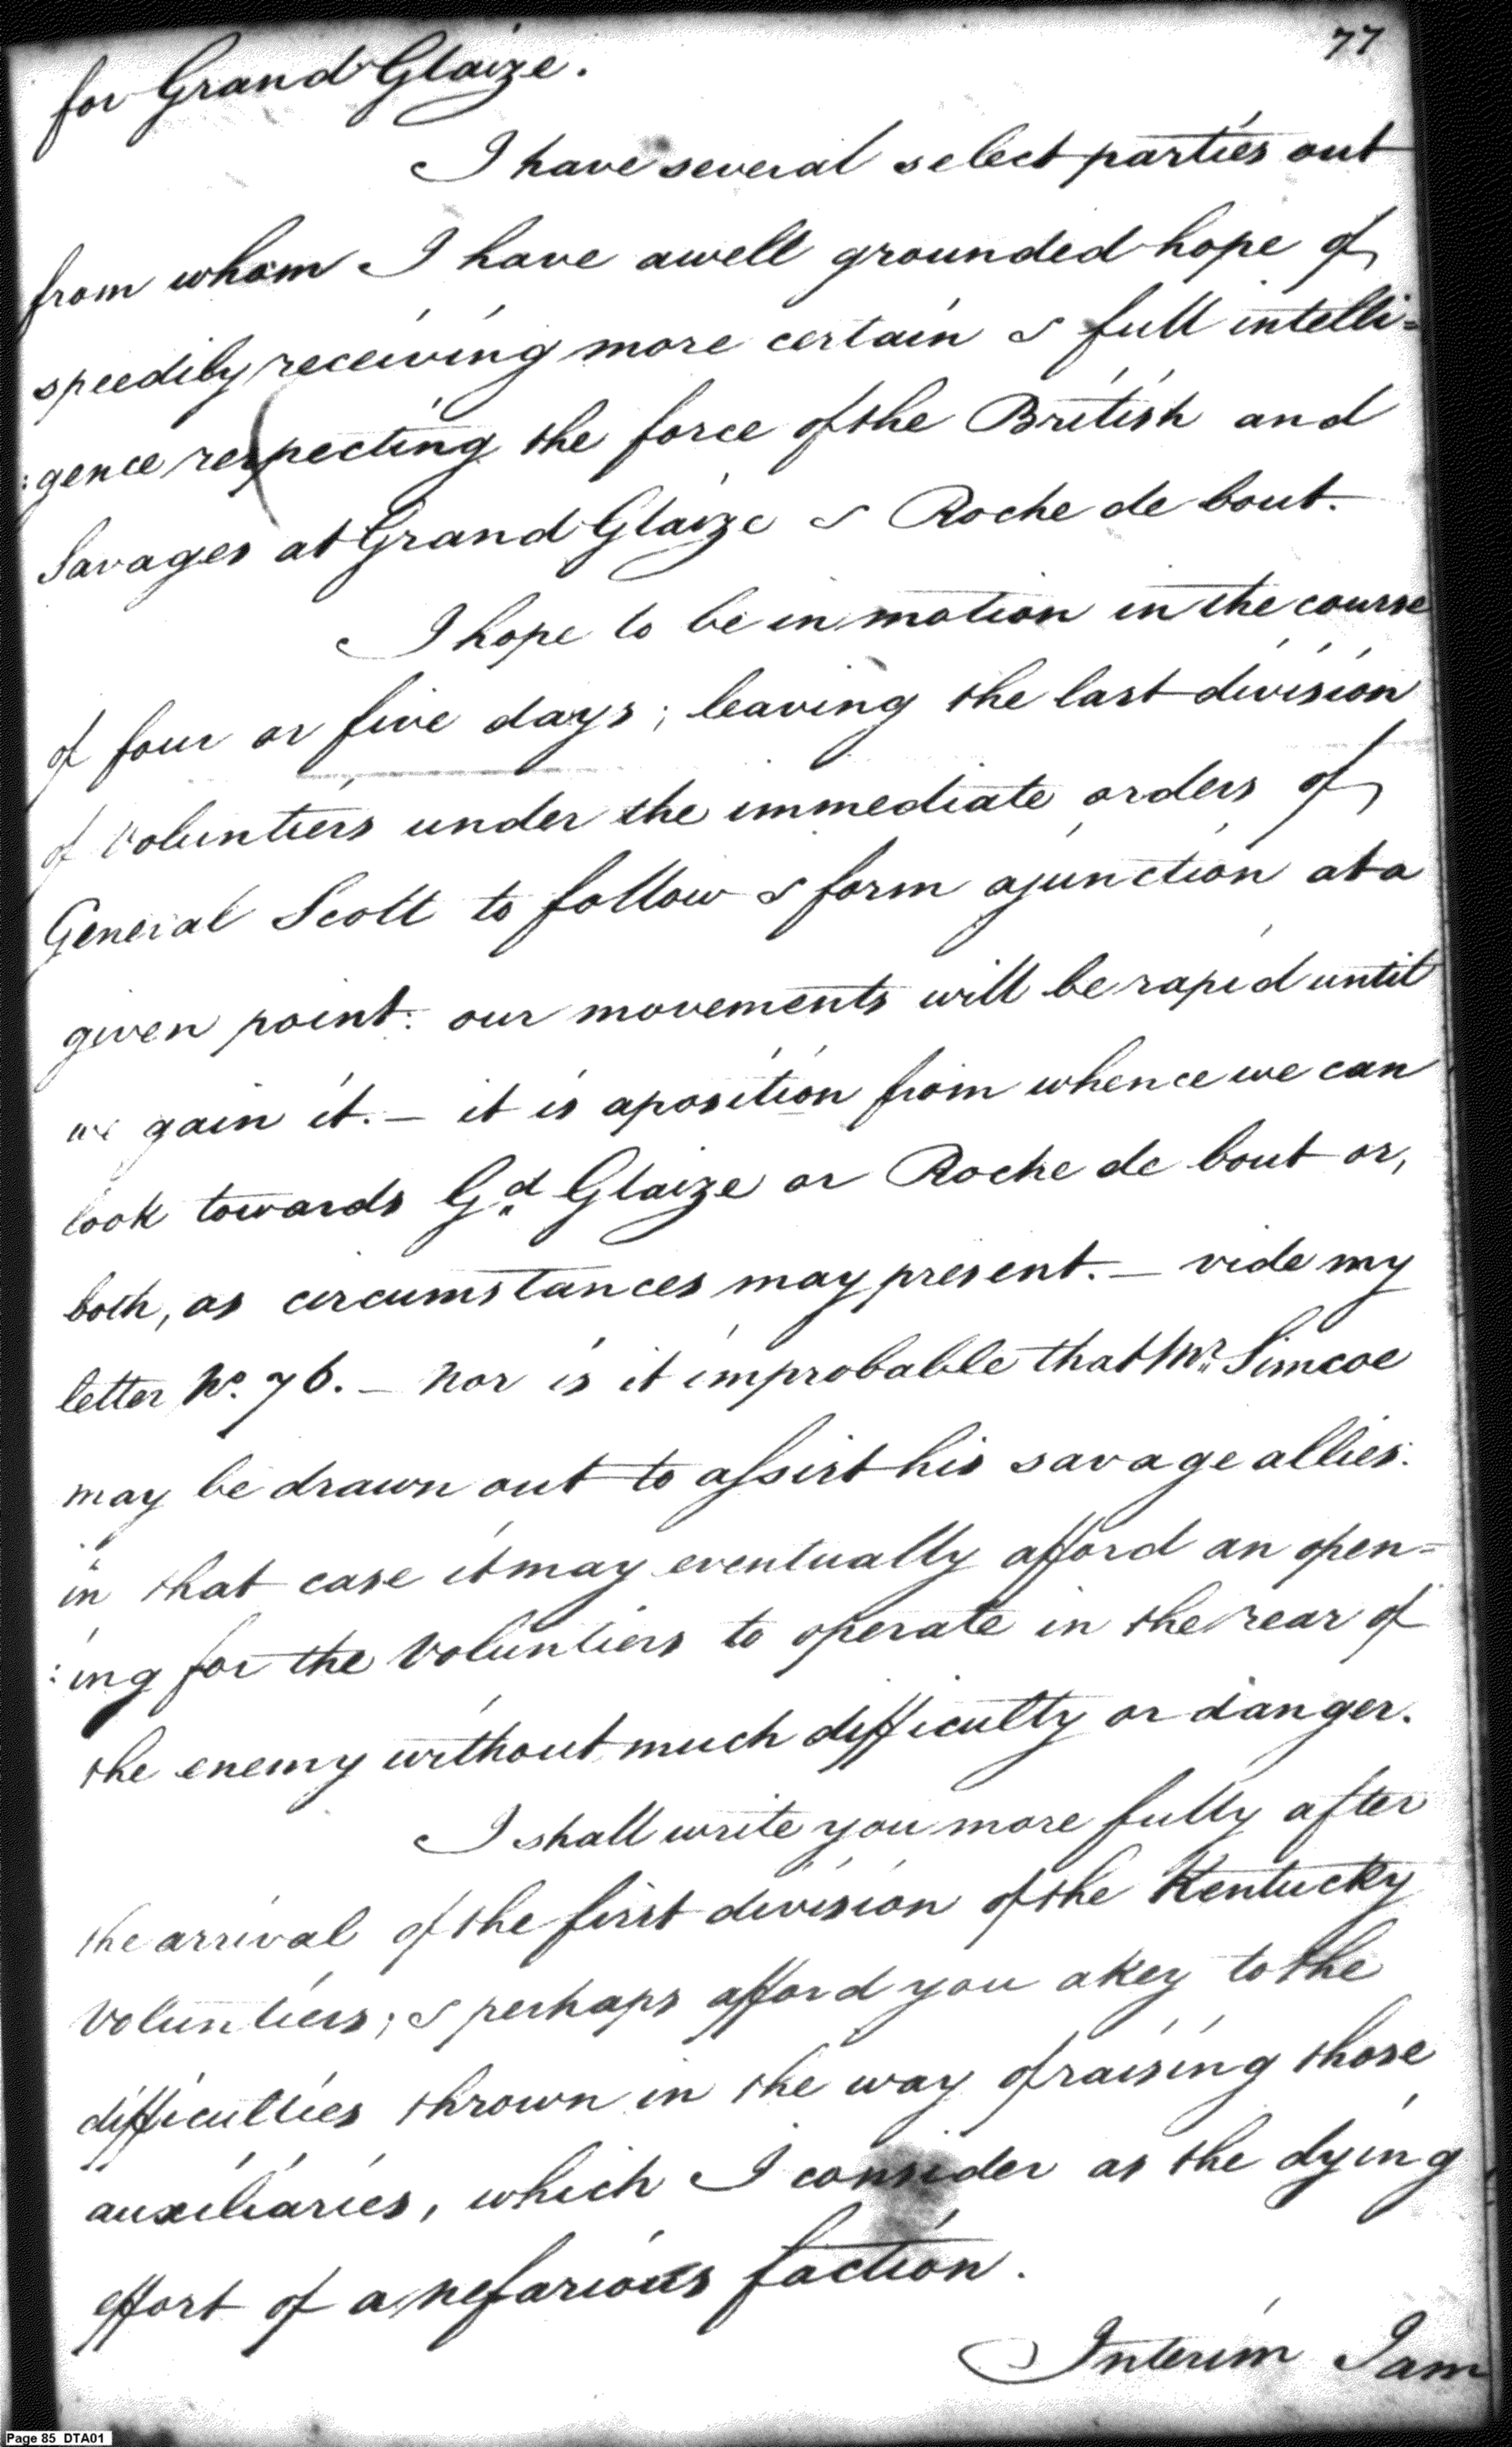 77
for Grand Glaize.
I have several select parties out
from whom I have a well grounded hope of
speedily receiving more certain & full intelli=
:gence respecting the force of the British and
Savages at Grand Glaize & Roche de bout.
I hope to be in motion in the course
of four or five days; leaving the last division
of Voluntiers under the immediate orders of
General Scott to follow & form a junction at a
given point: our movements will be rapid until
we gain it. — it is a position from whence we can
look towards Gd Glaize or Roche de bout or,
both, as circumstances may present. — vide my
letter No. 76. — Nor is it improbable that Mr. Simcoe
may be drawn out to assist his savage allies.
in that case it may eventually afford an open=
:ing for the Voluntiers to operate in the rear of
the enemy without much difficulty or danger.
I shall write you more fully after
the arrival of the first division of the Kentucky
Voluntiers; & perhaps afford you a key to the
difficulties thrown in the way of raising those
auxiliaries, which I consider as the dying
effort of a nefarious faction.
Interim I am
Page 85 DTA01